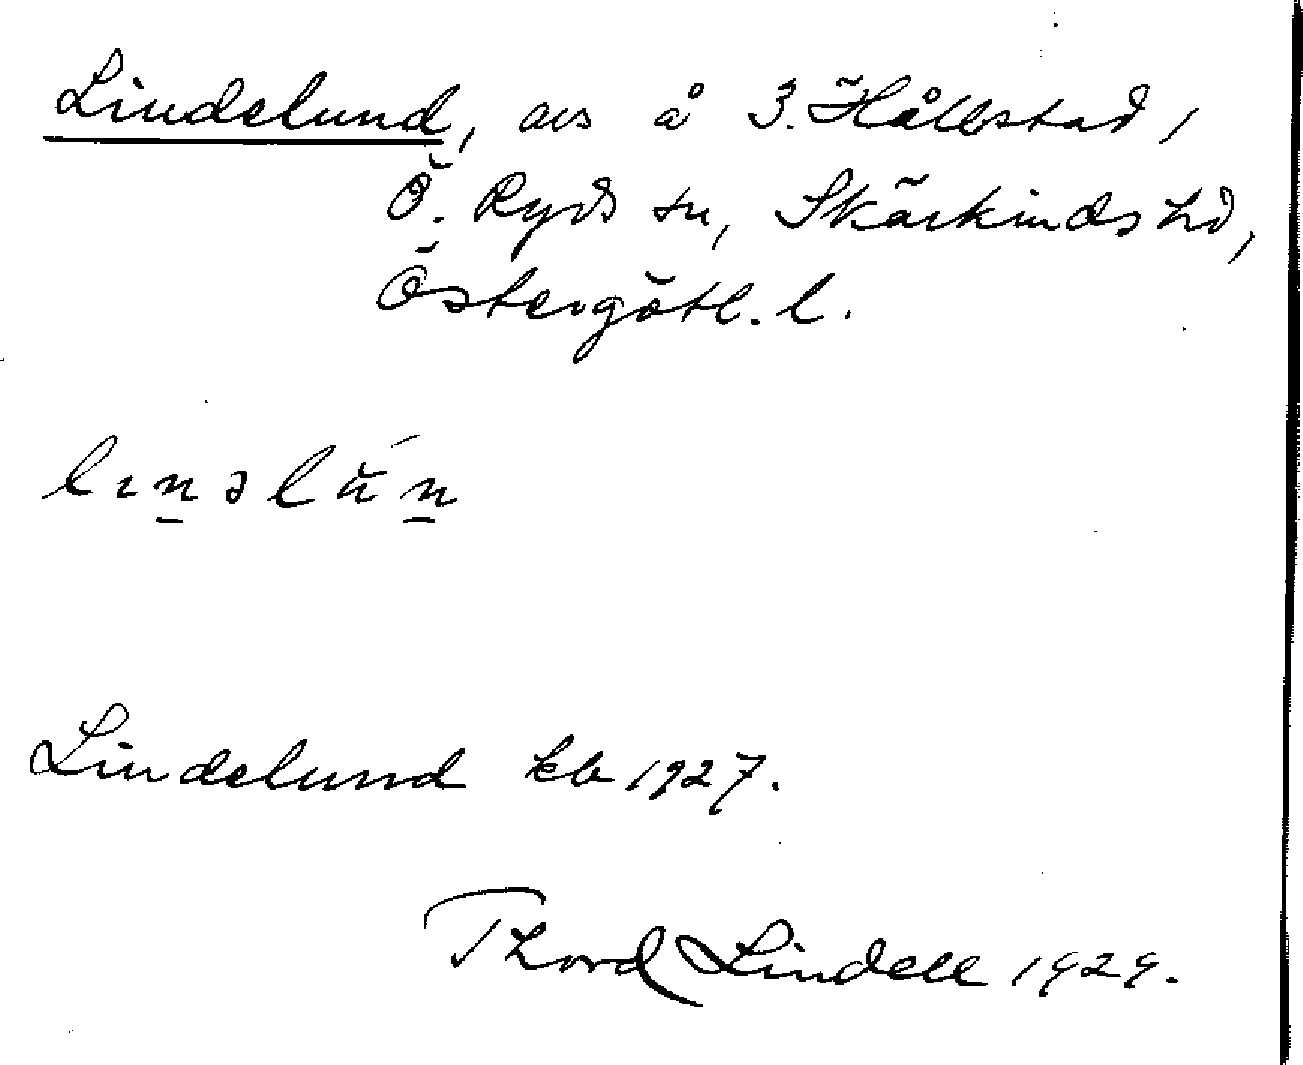 Lindelund, avs å 3. Hålbstad,
Ö. Ryds sn, Skärkinds hd,
Östergötl. l.
lınəlŭ́n
Lindelund kb 1927.
Thord Lindell 1929.